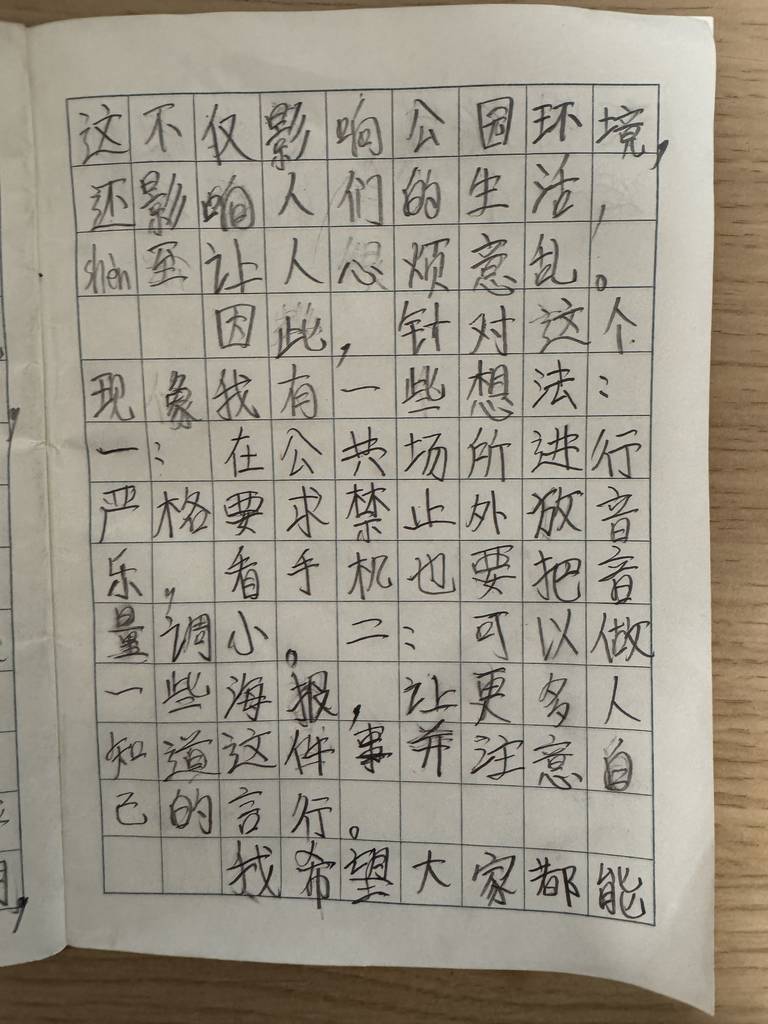 这不仅影响公园环境，
还影响人们的生活，
shèn至让人心烦意乱。
因此，针对这个
现象我有一些想法：
一：在公共场所进行
严格要求禁止外放音
乐，看手机也要把音
量调小。二：可以做
一些海报，让更多人
知道这件事并注意自
己的言行。
我希望大家都能